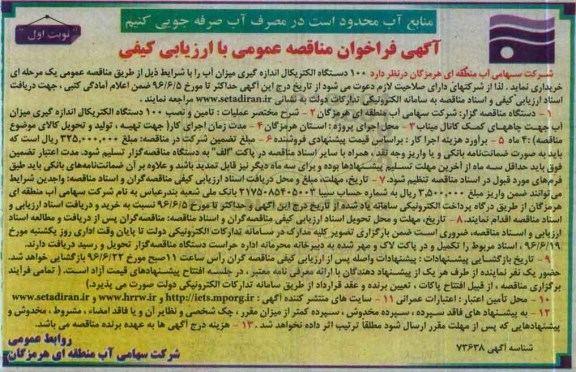 منابع آب محدود است در مصرف آب صرفه جویی کنیم
نوبت اول
آگهی فراخوان مناقصه عمومی با ارزیابی کیفی
شرکت سهامی آب منطقه ای هرمزگان درنظر دارد ۱۰۰ دستگاه الکتریکال اندازه گیری میزان آب را با شرایط ذیل از طریق مناقصه عمومی یک مرحله ای
خریداری نماید . لذا از شرکتهای دارای صلاحیت لازم دعوت می شود از تاریخ درج این آگهی حداکثر تا مورخ ۹۶/۶/۵ ضمن اعلام آمادگی کتبی ، جهت دریافت
اسناد ارزیابی کیفی و اسناد مناقصه به سامانه الکترونیکی تدارکات دولت به نشانی www.setadiran.ir مراجعه نمایند .
۱ – دستگاه مناقصه گزار: شرکت سهامی آب منطقه ای هرمزگان ۲ – شرح مختصر عملیات : تامین و نصب ۱۰۰ دستگاه الکتریکال اندازه گیری میزان
آب جهت چاههای کمک کانال میناب ۳ – محل اجرای پروژه : استان هرمزگان ۴ – مدت زمان اجرای کار( جهت تهیه ، تولید و تحویل کالای موضوع
مناقصه) :۴ ماه ۵ – برآورد هزینه اجرا کار : براساس قیمت پیشنهادی فروشنده ۶ – مبلغ تضمین شرکت در مناقصه: مبلغ ۳۲۵,۰۰۰,۰۰۰ ریال است که
باید به صورت ضمانت‌نامه بانکی و یا واریز وجه نقد، همراه با سایر اسناد مناقصه، در پاکت "الف" به دستگاه مناقصه گزار تسلیم شود. مدت اعتبار تضامین
فوق باید حداقل سه ماه از آخرین مهلت تسلیم پیشنهادها بوده و برای سه ماه دیگر نیز قابل تمدید باشند و علاوه بر آن ضمانت‌نامه‌های بانکی باید طبق
فرم‌های مورد قبول در اسناد مناقصه تنظیم شود. ۷ – تاریخ، مهلت، مبلغ و محل دریافت اسناد ارزیابی کیفی مناقصه‌گران و اسناد مناقصه: واجدین شرایط
می‌توانند ضمن واریز مبلغ ۳,۵۰۰,۰۰۰ ریال به شماره حساب سیبا ۲۱۷۵۰۸۵۴۰۵۰۰۳ بانک ملی شعبه بندرعباس به نام شرکت سهامی آب منطقه ای
هرمزگان از طریق درگاه پرداخت الکترونیکی سامانه یاد شده از تاریخ درج این آگهی تا حداکثر تا مورخ ۹۶/۶/۵ نسبت به خرید و دریافت اسناد ارزیابی کیفی
و اسناد مناقصه اقدام نمایند. ۸ – تاریخ، مهلت و محل تحویل اسناد ارزیابی کیفی مناقصه‌گران و اسناد مناقصه: مناقصه‌گران پس از دریافت و مطالعه اسناد
ارزیابی و اسناد مناقصه، ضروری است ضمن بارگزاری تصویر کلیه مدارک در سامانه تدارکات الکترونیکی دولت تا پایان وقت اداری روز یکشنبه مورخ
۹۶/۶/۱۹ ، اسناد مربوط را تکمیل و در پاکت لاک و مهر شده به دبیرخانه محرمانه اداره حراست دستگاه مناقصه‌گزار تحویل و رسید دریافت دارند.
۹ – تاریخ بازگشایی پیشنهادات : پیشنهادات واصله پس از ارزیابی کیفی مناقصه گران رأس ساعت ۱۱صبح مورخ ۹۶/۶/۲۲ بازگشایی خواهد شد.
حضور یک نفر نماینده از طرف هر یک از پیشنهاد دهندگان با ارائه معرفی نامه معتبر ، در جلسه افتتاح پیشنهادهای قیمت آزاد است. ( تمامی فرایند
برگزاری مناقصه ، از قبیل افتتاح پاکات ، تعیین برنده و عقد قرارداد از طریق سامانه تدارکات الکترونیکی دولت صورت می پذیرد.)
۱۰ – محل تأمین اعتبار : اعتبارات عمرانی ۱۱ – سایت های منتشر کننده آگهی : http://iets.mporg.ir و www.hrrw.ir و www.setadiran.ir
۱۲ – به پیشنهاد های فاقد سپرده ، سپرده مخدوش ، سپرده کمتر از میزان مقرر ، چک شخصی و نظایر آن و یا فاقد امضاء ، مشروط ، مخدوش و
پیشنهادهایی که پس از مهلت مقرر ارسال شود مطلقا ترتیب اثر داده نخواهد شد . ۱۳ – هزینه درج آگهی ها به عهده برنده مناقصه می باشد.
شناسه آگهی ۷۳۶۳۸
روابط عمومی
شرکت سهامی آب منطقه ای هرمزگان